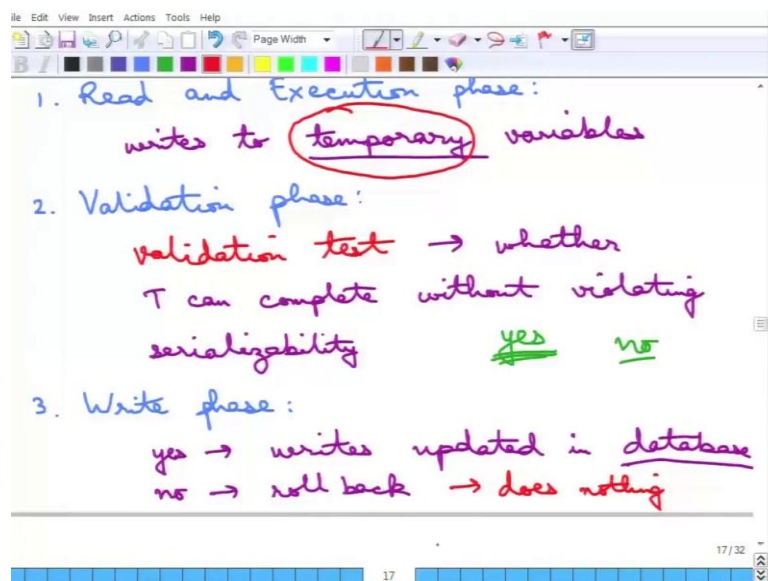 ile Edit View Insert Actions Tools Help
Page Width
B I
1. Read and Execution phase:
writes to temporary variables
2. Validation phase:
validation test → whether
T can complete without violating
serializability yes no
3. Write phase:
yes → writes updated in database
no → roll back → does nothing
17/32
17